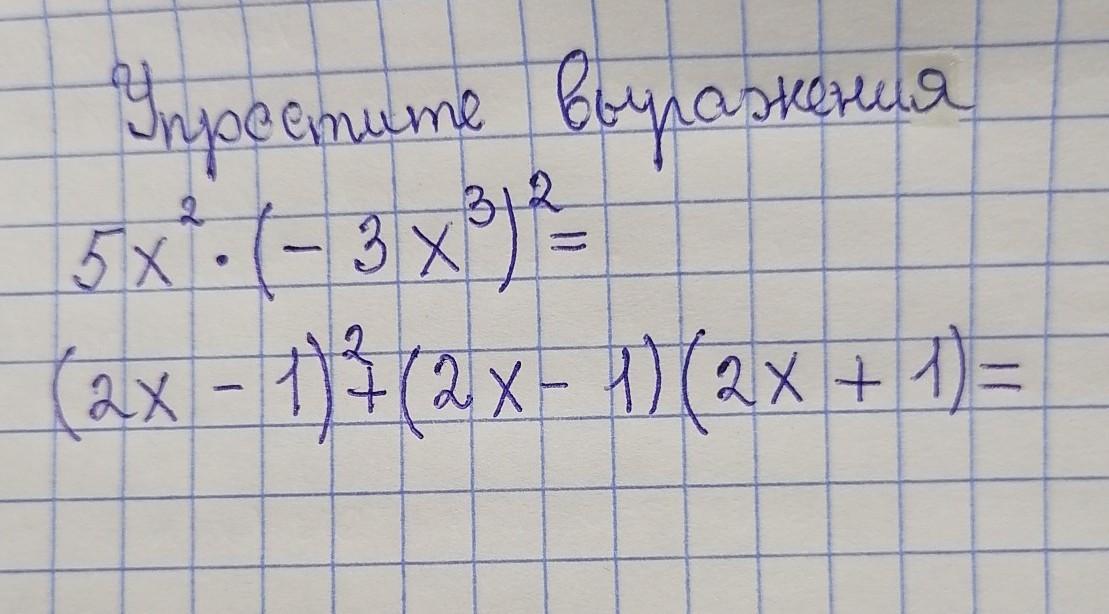 Упростите выражения
5x² · (- 3x³)² =
(2x - 1)² + (2x - 1)(2x + 1) =